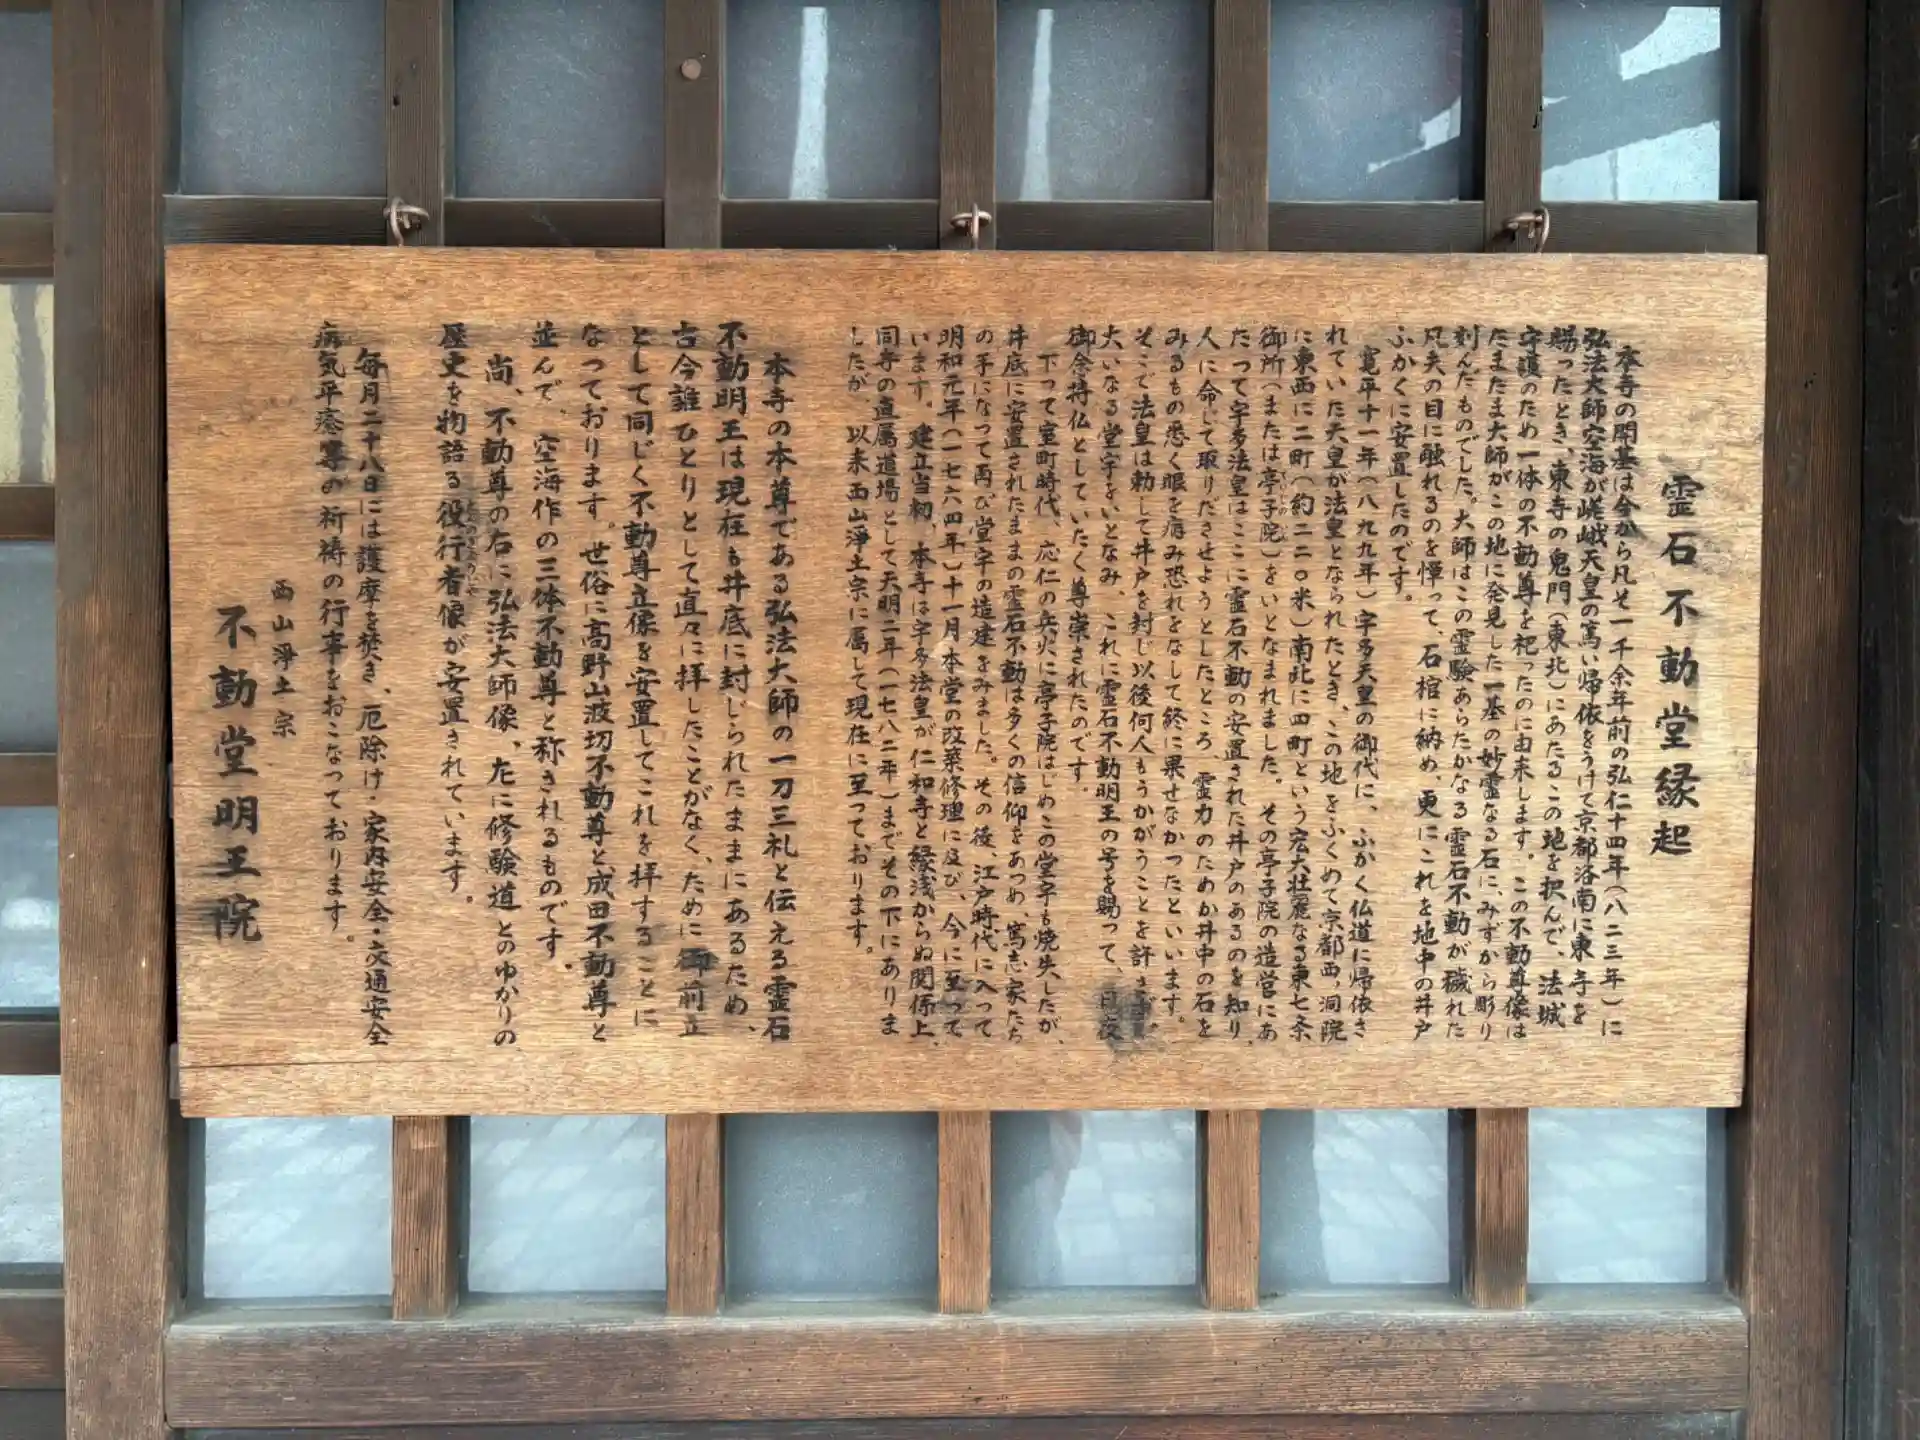 霊石不動堂縁起
本寺の開基は今から凡そ一千余年前の弘仁十四年(八二三年)に
弘法大師空海が嵯峨天皇の篤い帰依をうけて京都洛南に東寺を
賜ったとき、東寺の鬼門(東北)にあたるこの地を択んで、法城
守護のため一体の不動尊を祀ったのに由来します。この不動尊像は
たまたま大師がこの地に発見した一基の妙霊なる石に、みずから彫り
刻んだものでした。大師はこの霊験あらたかなる霊石不動が穢れた
凡夫の目に融れるのを憚って、石棺に納め、更にこれを地中の井戸
ふかくに安置したのです。
寛平十一年(八九九年)宇多天皇の御代に、ふかく仏道に帰依さ
れていた天皇が法皇となられたとき、この地をふくめて京都西,洞院
に東西に二町(約二二〇米)南北に四町という宏大壮麗なる東七条
御所(または亭子院)をいとなまれました。その亭子院の造営にあ
たって宇多法皇はここに霊石不動の安置された井戸のあるのを知り、
人に命じて取りださせようとしたところ、霊力のためか井中の石を
みるもの悉く眼を病み恐れをなして終に果せなかったといいます。
そこで法皇は勅して井戸を封じ以後何人もうかがうことを許さず、
大いなる堂宇をいとなみ、これに霊石不動明王の号を賜って、日夜
御念持仏としていたく尊崇されたのです。
下って室町時代、応仁の兵火に亭子院はじめこの堂宇も焼失したが、
井底に安置されたままの霊石不動は多くの信仰をあつめ、篤志家たち
の手になって再び堂宇の造建をみました。その後、江戸時代に入って
明和元年(一七六四年)十一月本堂の改築修理に及び、今に至って
います。建立当初、本寺は宇多法皇が仁和寺と縁浅からぬ関係上、
同寺の直属道場として天明二年(一七八二年)までその下にありま
したが、以来西山浄土宗に属して現在に至っております。
本寺の本尊である弘法大師の一刀三礼と伝える霊石
不動明王は現在も井底に封じられたままにあるため、
古今誰ひとりとして直々に拝したことがなく、ために御前立
として同じく不動尊立像を安置してこれを拝することに
なっております。世俗に高野山波切不動尊と成田不動尊と
並んで、空海作の三体不動尊と称されるものです。
尚、不動尊の右に弘法大師像、左に修験道とのゆかりの
歴史を物語る役行者像が安置されています。
毎月二十八日には護摩を焚き、厄除け・家内安全・交通安全
病気平癒等の祈祷の行事をおこなっております。
西山浄土宗
不動堂明王院